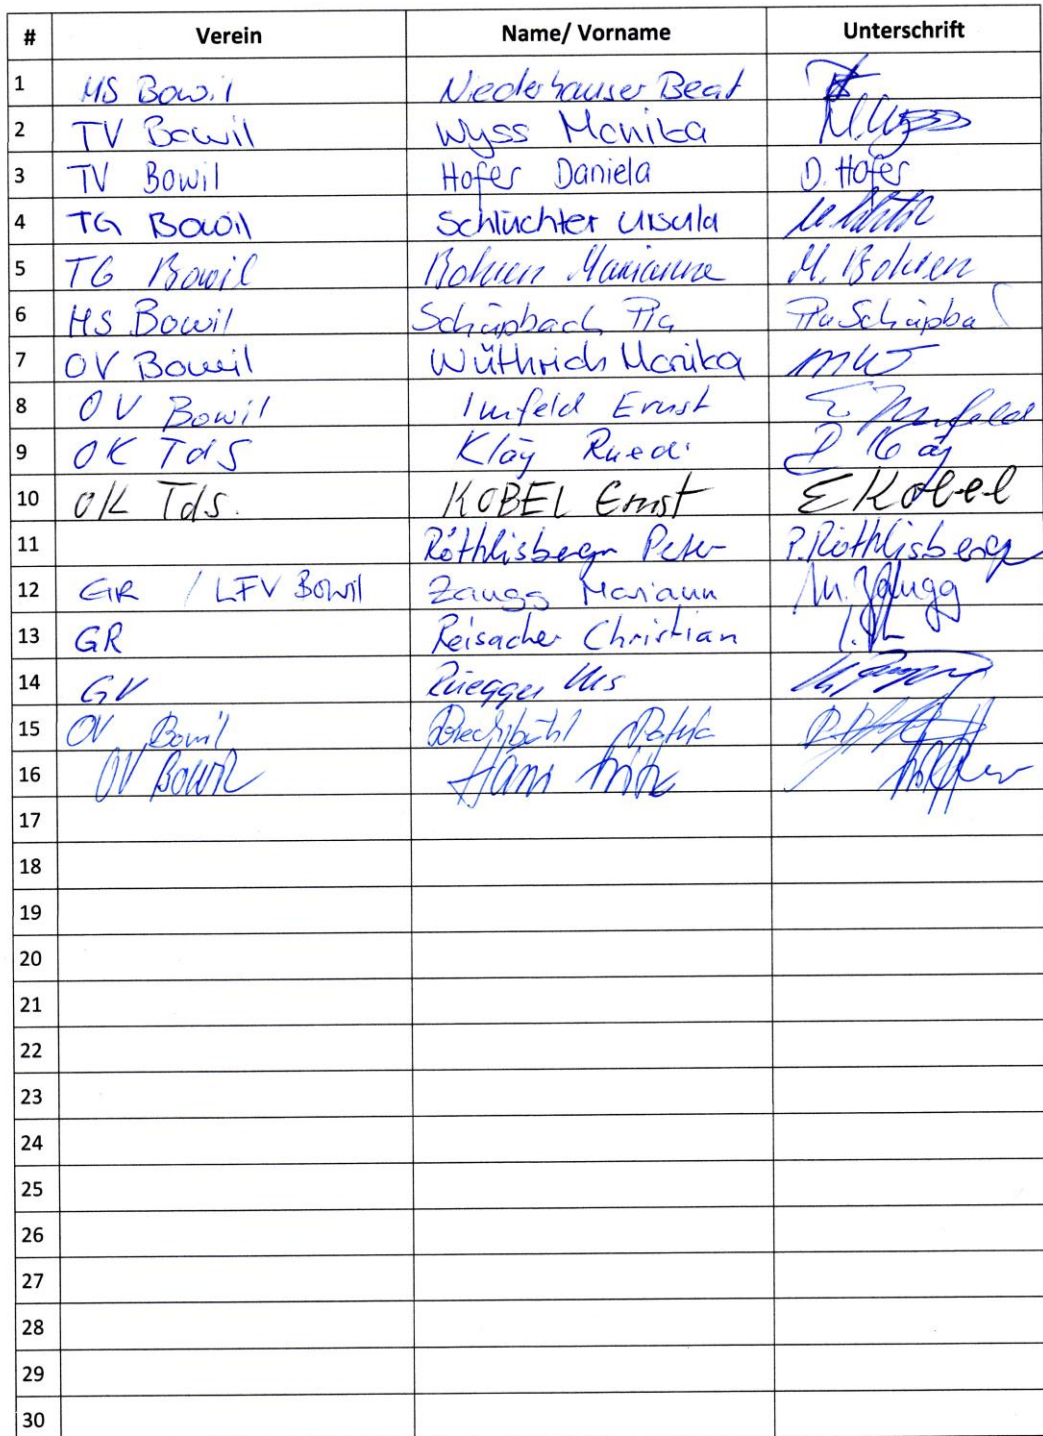 # Verein Name/ Vorname Unterschrift
1 MS Bowil Niederhauser Beat
2 TV Bowil Wyss Monika M. Wyss
3 TV Bowil Hofer Daniela D. Hofer
4 TG Bowil Schlüchter Ursula
5 TG Bowil Bohren Marianne M. Bohren
6 MS Bowil Schüpbach Pia Pia Schüpba
7 OV Bowil Wüthrich Monika MW
8 OV Bowil Imfeld Ernst E Imfeld
9 OK TdS Kläy Ruedi
10 OK TdS. KOBEL Ernst E Kobel
11 Röthlisberger Peter P. Röthlisberger
12 GR / LFV Bowil Zaugg Mariann M. Zaugg
13 GR Reisacher Christian
14 GV Rüegger Urs
15 OV Bowil
16 OV Bowil
17
18
19
20
21
22
23
24
25
26
27
28
29
30